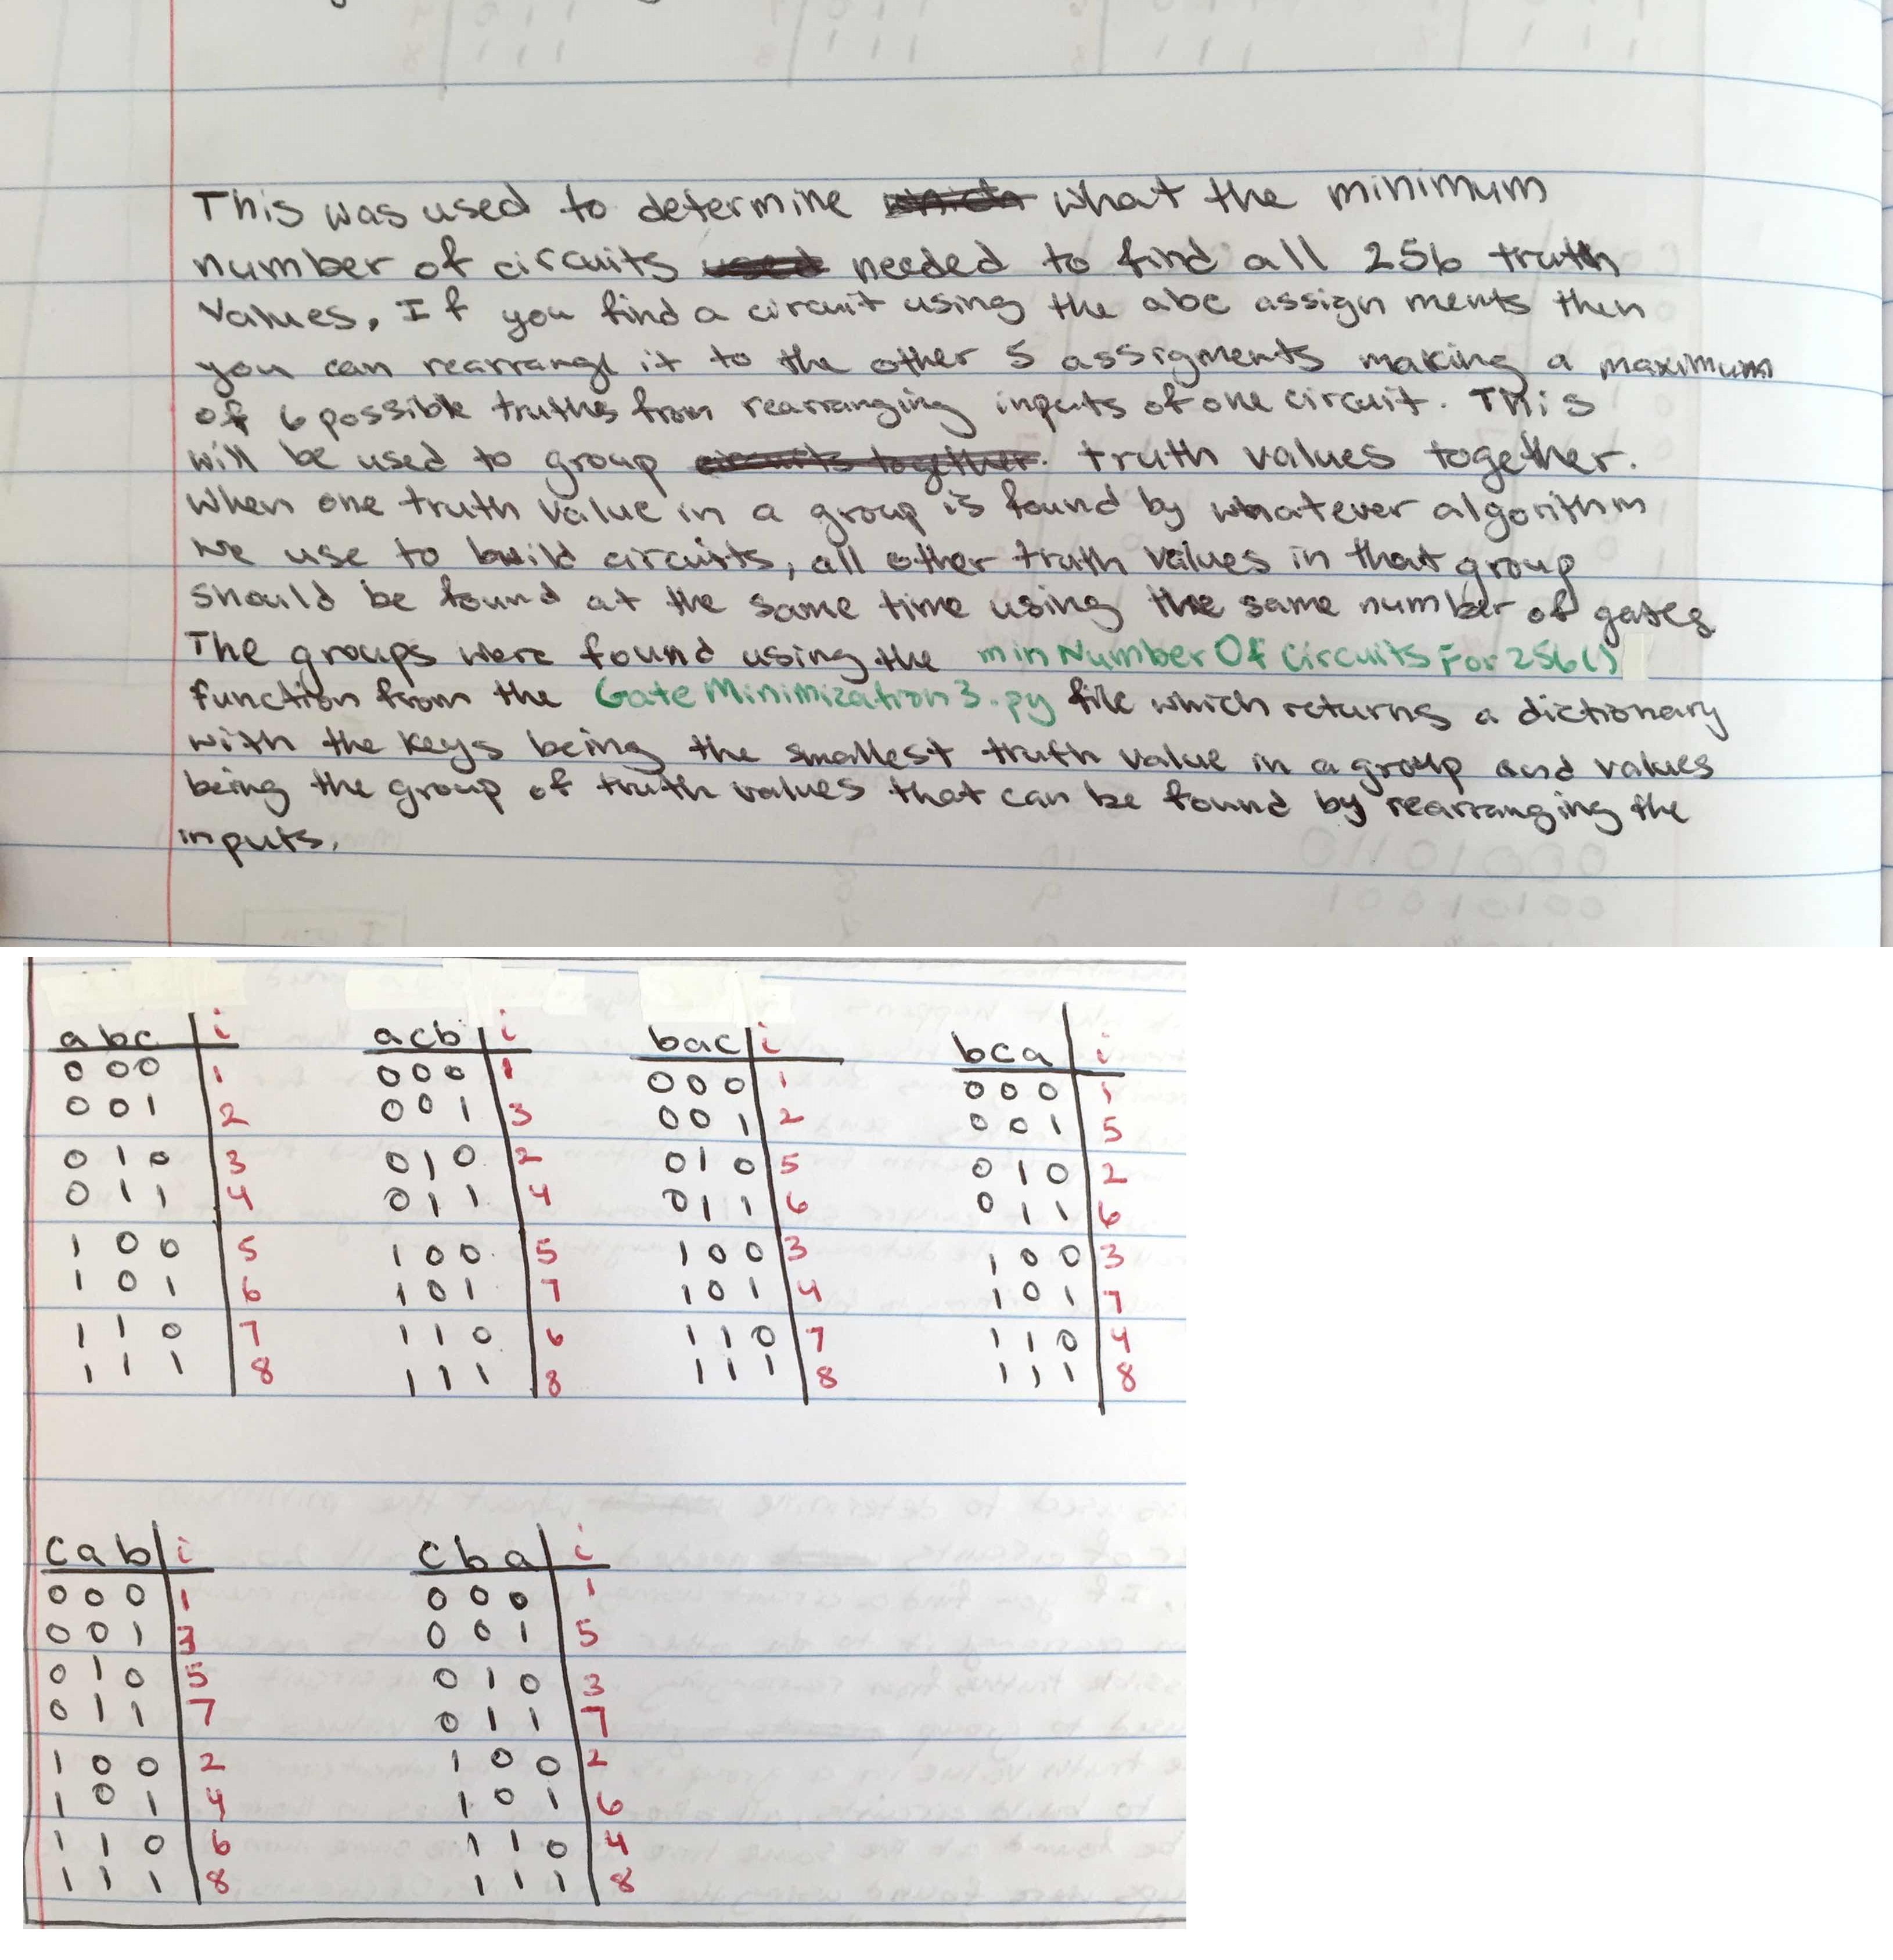 This was used to determine what the minimum
number of circuits needed to find all 256 truth
values. If you find a circuit using the abc assign ments then
you can rearrange it to the other 5 assigments making a maximum
of 6 possible truths from rearranging inputs of one circuit. This
will be used to group circuits together. truth values together.
When one truth value in a group is found by whatever algorithm
we use to build circuits, all other truth values in that group
should be found at the same time using the same number of gates
The groups were found using the minNumberOfCircuitsFor256()
function from the GateMinimization3.py file which returns a dictionary
with the keys being the smallest truth value in a group and values
being the group of truth values that can be found by rearranging the
inputs.
abc i acb i bac i bca i
000 1 000 1 000 1 000 1
001 2 001 3 001 2 001 5
010 3 010 2 010 5 010 2
011 4 011 4 011 6 011 6
100 5 100 5 100 3 100 3
101 6 101 7 101 4 101 7
110 7 110 6 110 7 110 4
111 8 111 8 111 8 111 8
cab i cba i
000 1 000 1
001 3 001 5
010 5 010 3
011 7 011 7
100 2 100 2
101 4 101 6
110 6 110 4
111 8 111 8